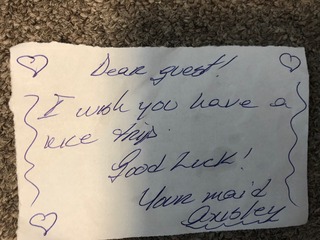 Dear guest!
I wish you have a
nice trip.
Good Luck!
Your maid